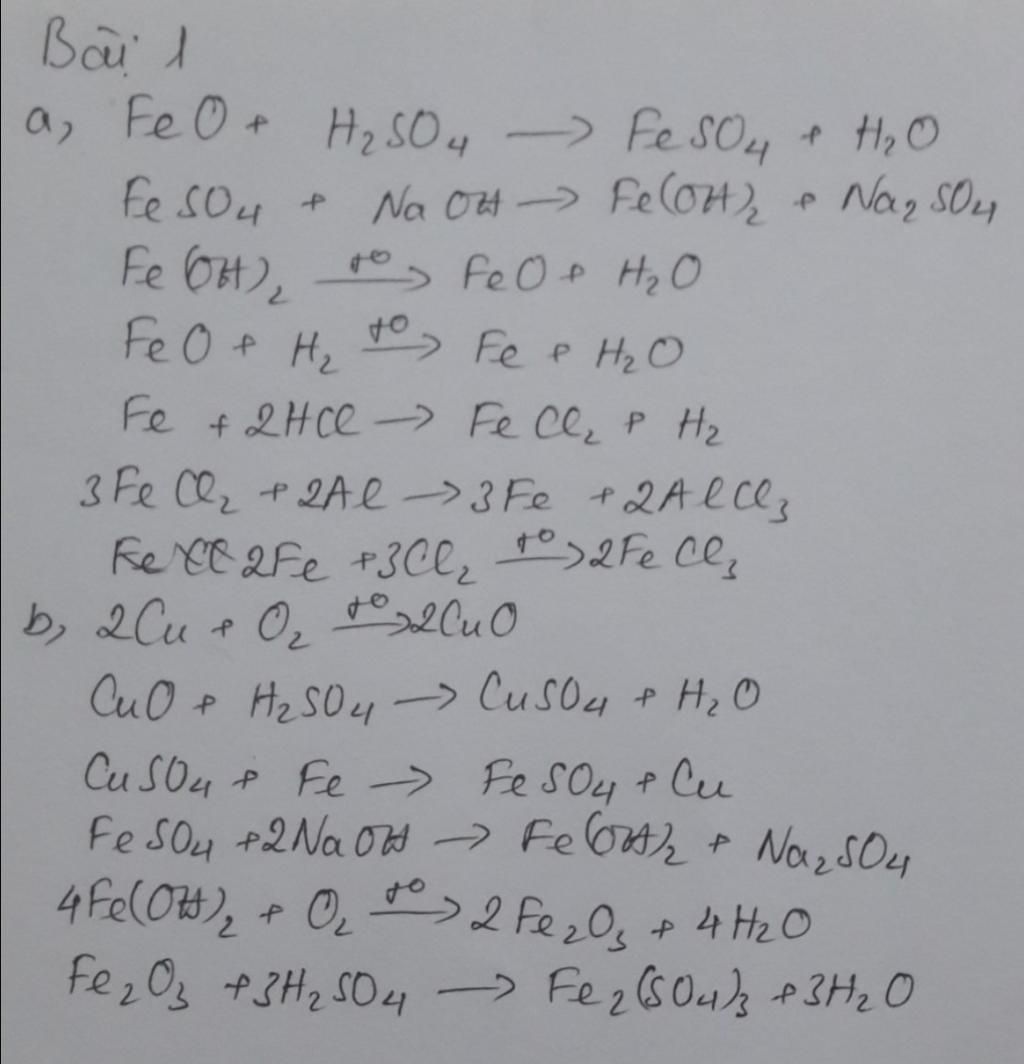 Bài 1
a, FeO + H₂SO₄ → FeSO₄ + H₂O
FeSO₄ + NaOH → Fe(OH)₂ + Na₂SO₄
Fe(OH)₂ t⁰→ FeO + H₂O
FeO + H₂ t⁰→ Fe + H₂O
Fe + 2HCl → FeCl₂ + H₂
3FeCl₂ + 2Al → 3Fe + 2AlCl₃
2Fe + 3Cl₂ t⁰→ 2FeCl₃
b, 2Cu + O₂ t⁰→ 2CuO
CuO + H₂SO₄ → CuSO₄ + H₂O
CuSO₄ + Fe → FeSO₄ + Cu
FeSO₄ + 2NaOH → Fe(OH)₂ + Na₂SO₄
4Fe(OH)₂ + O₂ t⁰→ 2Fe₂O₃ + 4H₂O
Fe₂O₃ + 3H₂SO₄ → Fe₂(SO₄)₃ + 3H₂O